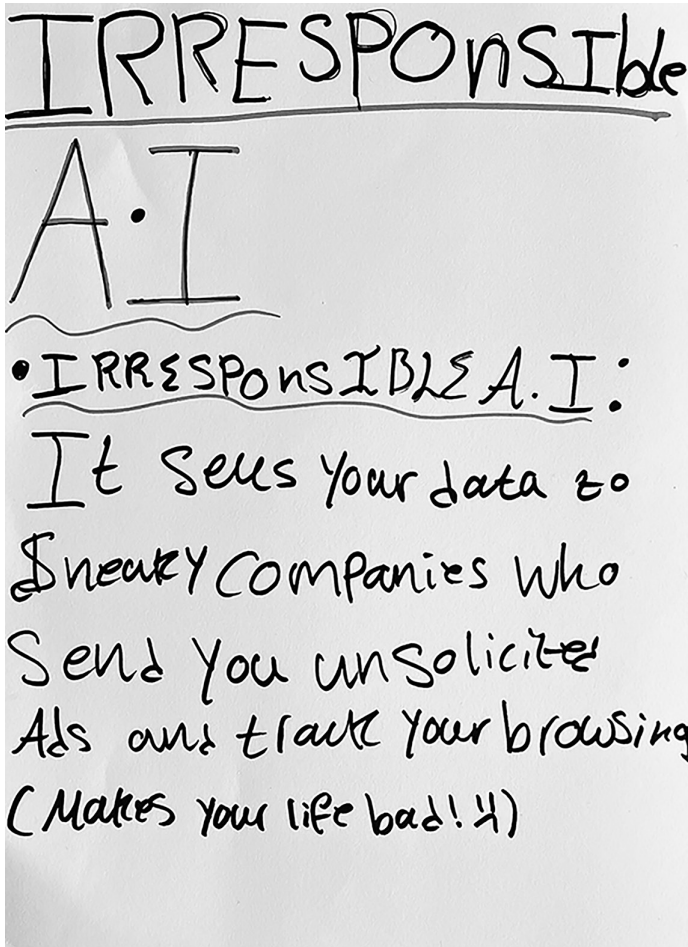 IRRESPOnSIble
A.I
• IRRESPOnSIBLE A.I:
It sells your data to
$neaky companies who
Send you unsolicited
Ads and track your browsing
(Makes your life bad! :()